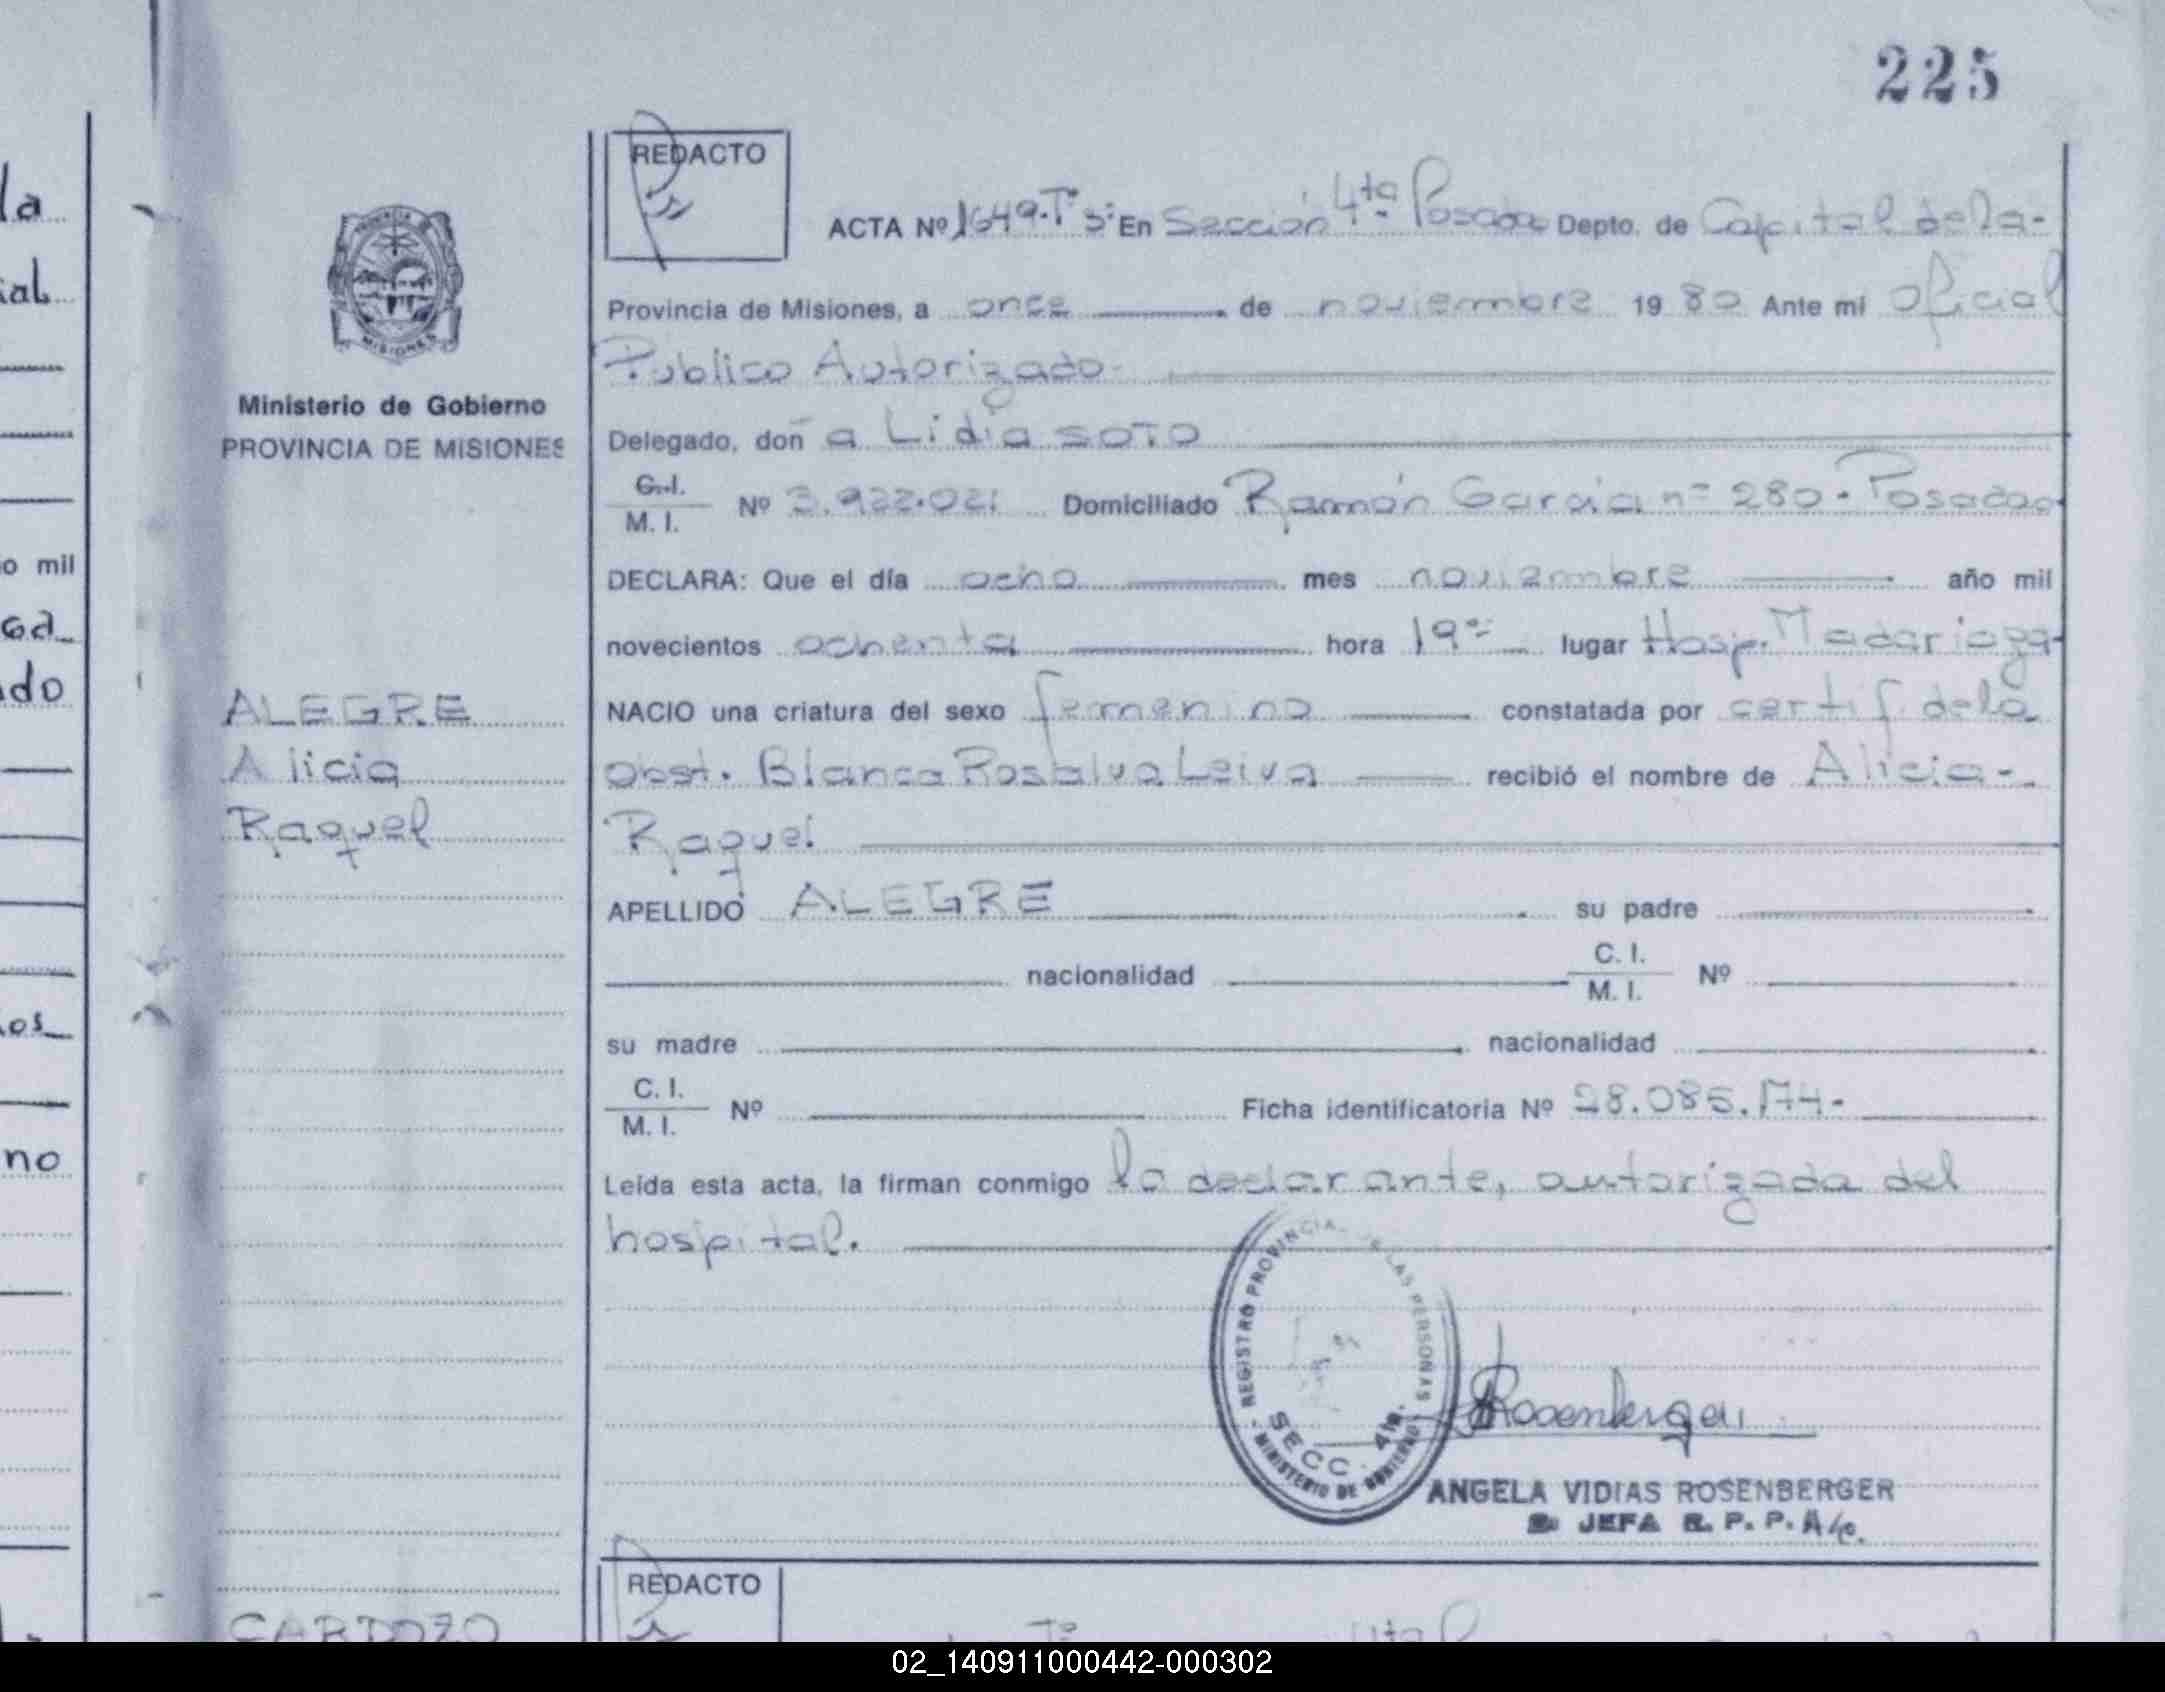 225
la
ial
o mil
ga
ado
ños
no
MISIONES
Ministerio de Gobierno
PROVINCIA DE MISIONES
ALEGRE
Alicia
Raquel
REDACTO
ACTA Nº 1649.Tº 5º En Sección 4ta Posadas Depto. de Capital de la-
Provincia de Misiones, a once de noviembre 19 80 Ante mi Oficial
Publico Autorizado
Delegado, don a Lidia SOTO
C.I.
M. I. Nº 3.922.021 Domiciliado Ramón Garcia nº 280. Posadas
DECLARA: Que el día ocho mes noviembre año mil
novecientos ochenta hora 19 lugar Hosp. Madariaga-
NACIO una criatura del sexo femenino constatada por certif de la
obst. Blanca Rosalva Leiva recibió el nombre de Alicia-
Raquel
APELLIDO ALEGRE su padre
nacionalidad C. I.
M. I. Nº
su madre nacionalidad
C. I.
M. I. Nº Ficha identificatoria Nº 28.085.174-
Leída esta acta, la firman conmigo la declarante, autorizada del
hospital.
REGISTRO PROVINCIAL DE LAS PERSONAS
SECC. 4ta.
MINISTERIO DE GOBIERNO
Rosenberger
ANGELA VIDIAS ROSENBERGER
JEFA R. P. P. A/c.
REDACTO
CARDOZO
02_140911000442-000302